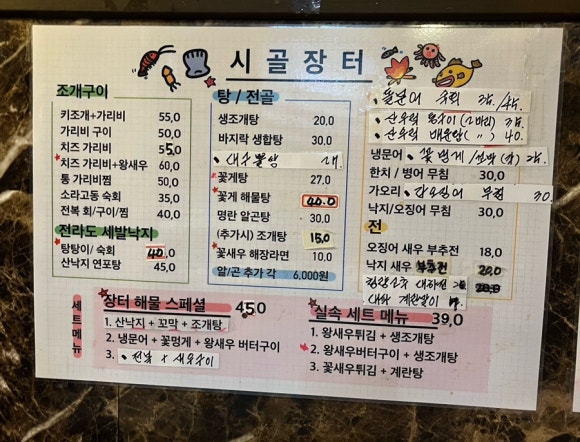 시골장터
조개구이
키조개+가리비 55,0
가리비 구이 50,0
치즈 가리비 55,0
치즈 가리비+왕새우 60,0
통 가리비찜 50,0
소라고동 숙회 35,0
전복 회/구이/찜 40,0
전라도 세발낙지
탕탕이/ 숙회 40,0
산낙지 연포탕 45,0
탕 / 전골
생조개탕 20,0
바지락 생합탕 30,0
꽃게탕 27,0
꽃게 해물탕 40.0
명란 알곤탕 30,0
(추가시) 조개탕 15,0
꽃새우 해장라면 10,0
알/곤 추가 각 6,000원
돌문어 숙회 35/45.
산우럭 통구이 (2마리) 35
산우럭 매운탕 ( 〃 ) 40.
냉문어
한치 / 병어 무침 30,0
가오리 무침 30.
낙지/오징어 무침 30,0
전
오징어 새우 부추전 18,0
낙지 새우 부추전 20,0
계란말이
세트메뉴
장터 해물 스페셜 45,0
1. 산낙지 + 꼬막 + 조개탕
2. 냉문어 + 꽃멍게 + 왕새우 버터구이
3. 새우구이
실속 세트 메뉴 39,0
1. 왕새우튀김 + 생조개탕
2. 왕새우버터구이 + 생조개탕
3. 꽃새우튀김 + 계란탕